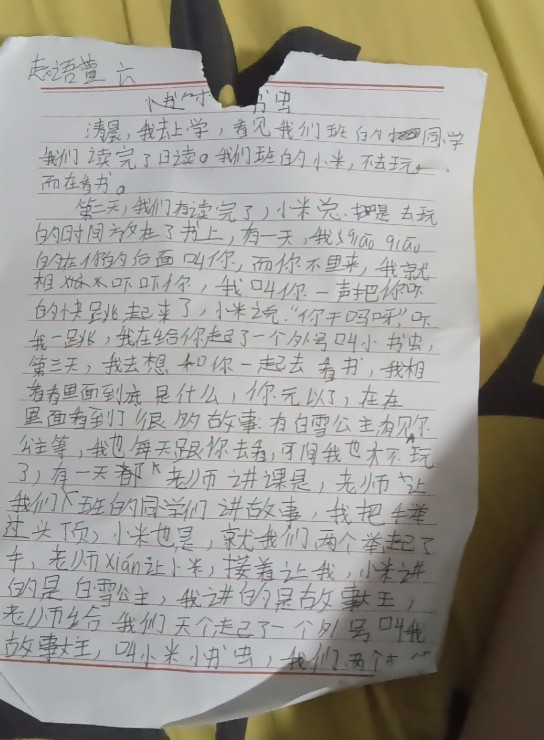 语萱 六
书虫
清晨，我去上学，看见我们班的同学
我们读完了日读。我们班的小米，不去玩。
而在看书。
第二天，我们有读完了，小米总是去玩
的时间放在了书上，有一天，我qiāo qiāo
的在你的后面叫你，而你不里来，我就
相 吓吓你，我叫你一声把你吓
的快跳起来了，小米说“你干吗呀”吓
我一跳，我在给你起了一个外号叫小书虫，
第三天，我去想和你一起去看书，我相
看看里面到底是什么，你元以了，在在
里面看到了很多故事有白雪公主
公主等，我也每天跟你去看，可间我也不玩
了，有一天 老师讲课是，老师让
我们班的同学们讲故事，我把手举
过头顶，小米也是，就我们两个举起了
手，老师xián让小米，接着让我，小米讲
的是白雪公主，我讲的是故事大王，
老师给我们 个走己了一个外号叫我
故事大王，叫小米小书虫，我们两个